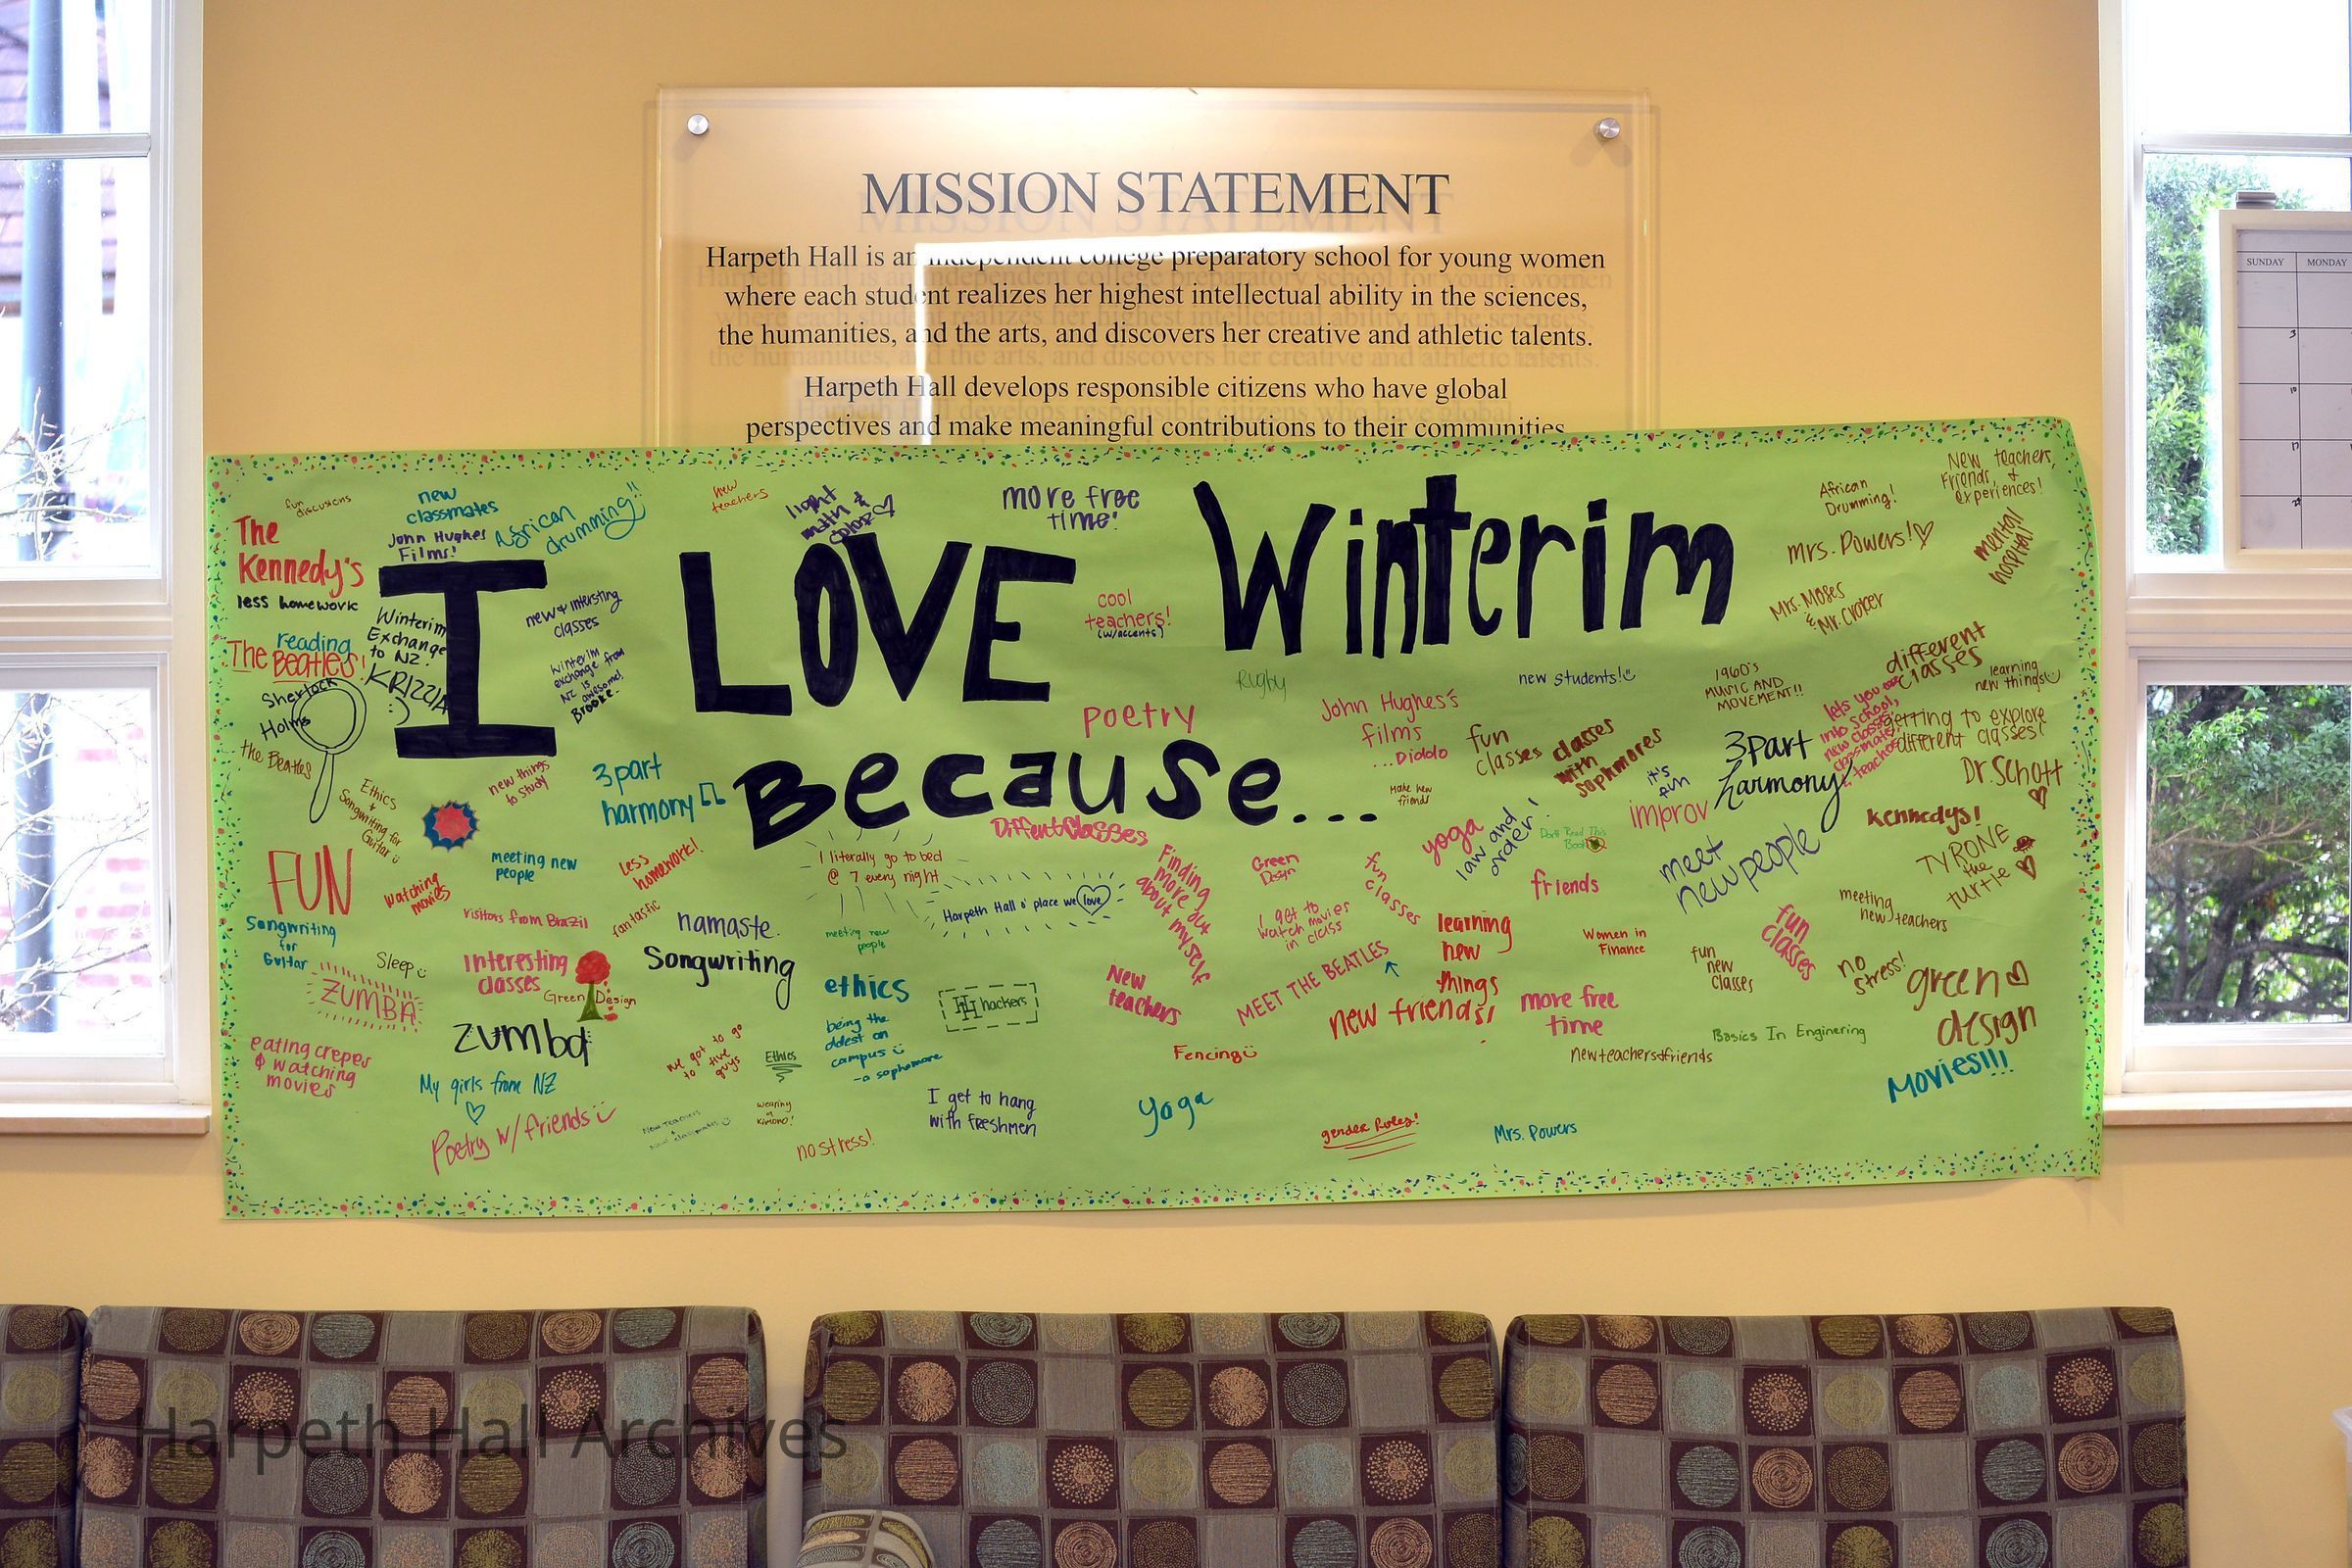 MISSION STATEMENT
Harpeth Hall is an independent college preparatory school for young women
where each student realizes her highest intellectual ability in the sciences,
the humanities, and the arts, and discovers her creative and athletic talents.
Harpeth Hall develops responsible citizens who have global
perspectives and make meaningful contributions to their communities.
SUNDAY MONDAY
3
10
17
24
I LOVE Winterim
Because...
fun
discussions
new
classmates
African
drumming!!
new
teachers
light
math &
color
more free
time!
African
Drumming!
New teachers,
Friends, &
experiences!
The
Kennedy's
John Hughes
Films!
less homework
Winterim
Exchange
to NZ!
KRIZZIA
:)
new & intersting
classes
cool
teachers!
(w/accents)
Mrs. Powers!
mental
hospital
Mrs. Moses
& Mr. Croker
reading
The Beatles!
Sherlock
Holms
the Beatles
winterim
exchange from
NZ is
awesome!
Brooke.
Rugby
new students!
1960's
MUSIC AND
MOVEMENT!!
different
classes
learning
new things
poetry
John Hughes's
films
...Diddlo
fun
classes
classes
with
sophmores
it's
fun
3 Part
harmony
lets you ease
into school,
new classes
classmates
teachers
getting to explore
different classes!
Dr. Schott
Ethics
&
Songwriting for
Guitar
new things
to study
3 part
harmony
Make new
friends
improv
Kennedys!
Diffent Classes
yoga
law and
order!
Don't Read This
Book
meet
new people
TYRONE
the
turtle
FUN
watching
movies
meeting new
people
less
homework!
I literally go to bed
@ 7 every night
Finding
more out
about myself
Green
Design
fun
classes
friends
meeting
new teachers
Songwriting
for
Guitar
visitors from Brazil
fantastic
namaste.
Harpeth Hall o' place we love
I get to
watch movies
in class
learning
new
things
Women in
Finance
fun
classes
Sleep
interesting
classes
Green Design
Songwriting
meeting new
people
MEET THE BEATLES
fun
new
classes
no
stress!
green
design
ZUMBA
zumba
ethics
HH hackers
New
teachers
new friends!
more free
time
Basics In Enginering
eating crepes
& watching
movies
we got to go
to five
guys
Ethics
being the
oldest on
campus
-a sophomore
Fencing
new teachers & friends
Movies!!!
My girls from NZ
Poetry w/ friends
New Teachers
+
new classmates
wearing
a
kimono!
no stress!
I get to hang
with freshmen
yoga
gender Roles!
Mrs. Powers
Harpeth Hall Archives